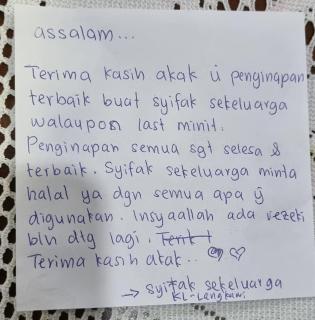 assalam...
Terima kasih akak ü penginapan
terbaik buat syifak sekeluarga
walaupon last minit.
Penginapan semua sgt selesa &
terbaik. Syifak sekeluarga minta
halal ya dgn semua apa ÿ
digunakan. Insyaallah ada rezeki
bln dtg lagi.
Terima kasih akak..
→ syifak sekeluarga
KL-Langkawi.